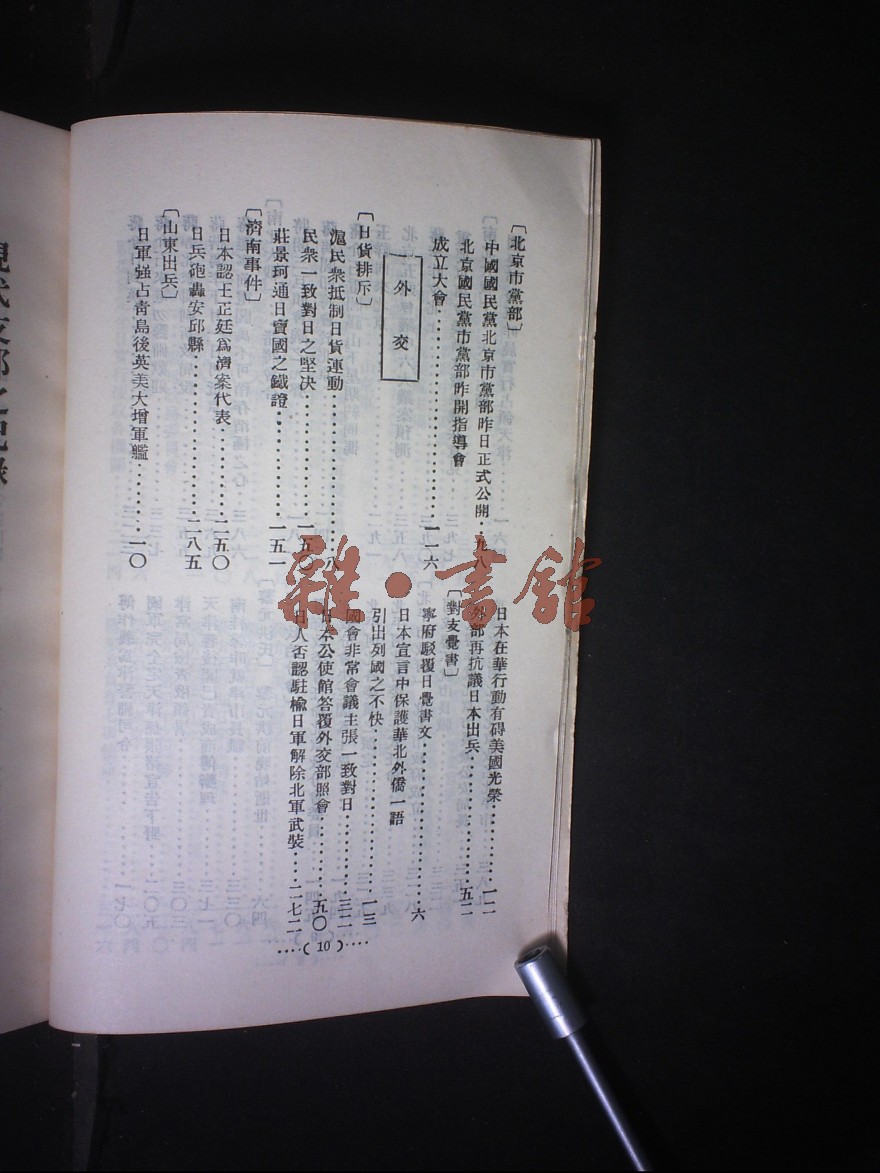 〔北京市黨部〕
中國國民黨北京市黨部昨日正式公開‥九八
北京國民黨市黨部昨開指導會
成立大會……………一二六
外交
〔日貨排斥〕
滬民衆抵制日貨運動……………八
民衆一致對日之堅决……………一五〇
莊景珂通日賣國之鐵證……………一五一
〔濟南事件〕
日本認王正廷爲濟案代表……………二五〇
日兵砲轟安邱縣……………二八五
〔山東出兵〕
日軍强占靑島後英美大增軍艦……………一〇
日本在華行動有碍美國光榮……………一二
外部再抗議日本出兵……………五二
〔對支覺書〕
寧府駁覆日覺書文……………六
日本宣言中保護華北外僑一語
引出列國之不快……………一三
國會非常會議主張一致對日……………三二
日本公使館答覆外交部照會……………五〇
日人否認駐楡日軍解除北軍武裝……………二七二
‥‥( 10 )‥‥
雜·書館